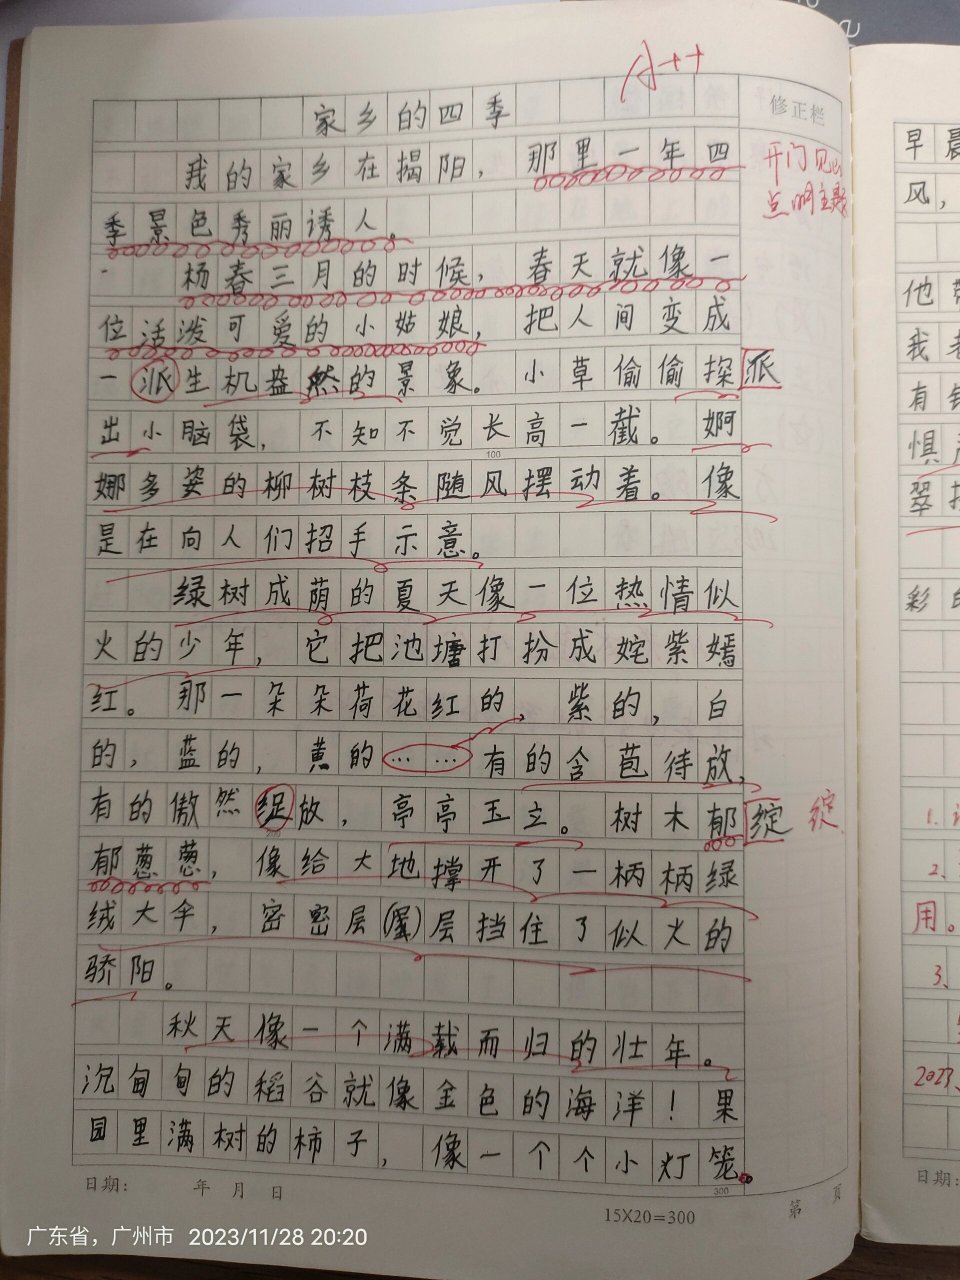 A++
修正栏
家乡的四季
我的家乡在揭阳，那里一年四
开门见山
点明主题
季景色秀丽诱人。
杨春三月的时候，春天就像一
位活泼可爱的小姑娘，把人间变成
一派生机盎然的景象。小草偷偷探
派
出小脑袋，不知不觉长高一截。婀
100
娜多姿的柳树枝条随风摆动着。像
是在向人们招手示意。
绿树成荫的夏天像一位热情似
火的少年，它把池塘打扮成姹紫嫣
红。那一朵朵荷花红的，紫的，白
的，蓝的，黄的……有的含苞待放，
有的傲然绽放，亭亭玉立。树木郁
绽 绽
郁葱葱，像给大地撑开了一柄柄绿
绒大伞，密密层(层)层挡住了似火的
骄阳。
秋天像一个满载而归的壮年。
沉甸甸的稻谷就像金色的海洋！果
园里满树的柿子，像一个个小灯笼。
300
日期： 年 月 日
15X20=300
第 页
早晨
风，
他
我
有
惧
翠
彩
1.
2、
用。
3、
2023、
日期：
广东省，广州市 2023/11/28 20:20